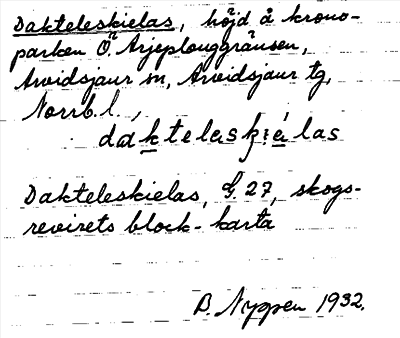 Dakteleskielas, höjd å krono-
parken Ö. Arjeplouggränsen,
Arvidsjaur sn, Arvidsjaur tg,
Norrb. l.,
daktelaski̯e̯´las
Dakteleskielas, G. 27, skogs-
revirets block-karta
B. Nygren 1932.